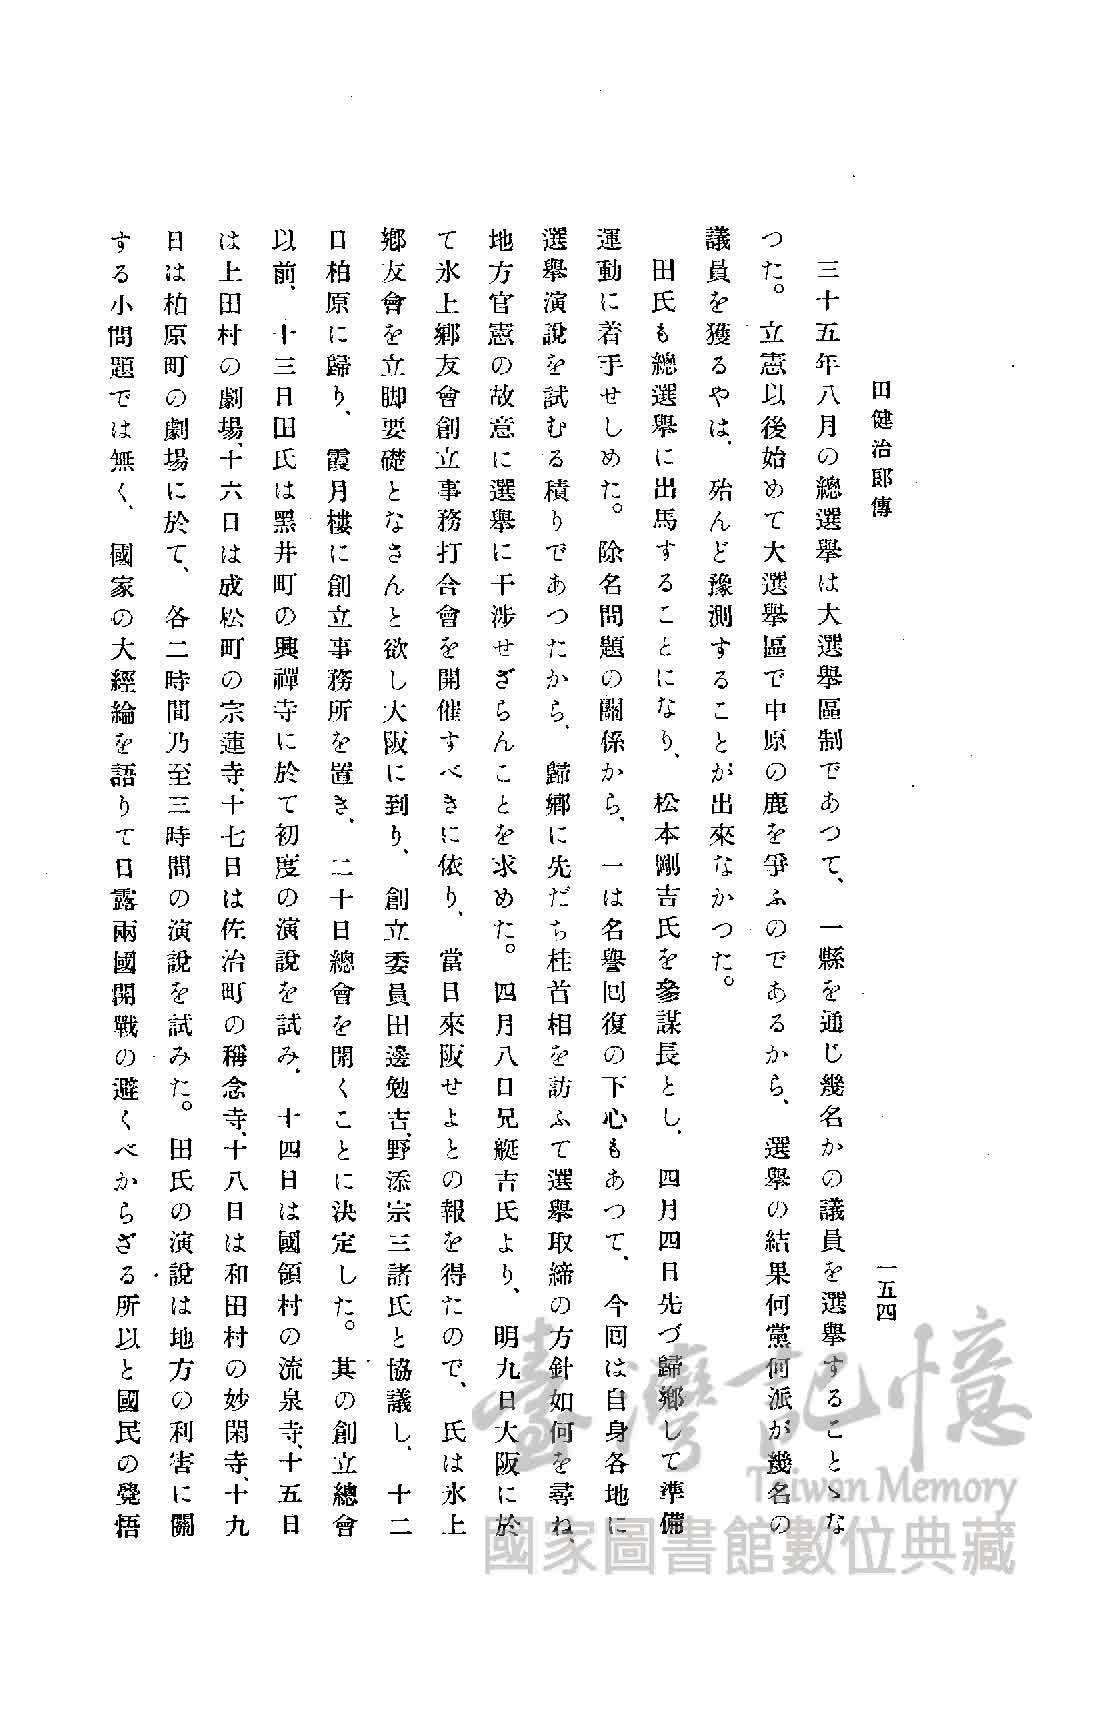 田健治郎傳
一五四
三十五年八月の總選擧は大選擧區制であつて、一縣を通じ幾名かの議員を選擧することゝな
つた。立憲以後始めて大選擧區で中原の鹿を爭ふのであるから、選擧の結果何黨何派が幾名の
議員を獲るやは、殆んど豫測することが出來なかつた。
田氏も總選擧に出馬することになり、松本剛吉氏を參謀長とし、四月四日先づ歸鄕して準備
運動に着手せしめた。除名問題の關係から、一は名譽回復の下心もあつて、今回は自身各地に
選擧演說を試むる積りであつたから、歸鄕に先だち桂首相を訪ふて選擧取締の方針如何を尋ね、
地方官憲の故意に選擧に干涉せざらんことを求めた。四月八日兄艇吉氏より、明九日大阪に於
て氷上鄕友會創立事務打合會を開催すべきに依り、當日來阪せよとの報を得たので、氏は氷上
鄕友會を立脚要礎となさんと欲し大阪に到り、創立委員田邊勉吉、野添宗三諸氏と協議し、十二
日柏原に歸り、霞月樓に創立事務所を置き、二十日總會を開くことに決定した。其の創立總會
以前、十三日田氏は黑井町の興禪寺に於て初度の演說を試み、十四日は國領村の流泉寺、十五日
は上田村の劇場、十六日は成松町の宗蓮寺、十七日は佐治町の稱念寺、十八日は和田村の妙閑寺、十九
日は柏原町の劇場に於て、各二時間乃至三時間の演說を試みた。田氏の演說は地方の利害に關
する小問題では無く、國家の大經綸を語りて日露兩國開戰の避くべからざる所以と國民の覺悟
臺灣記憶
Taiwan Memory
國家圖書館數位典藏